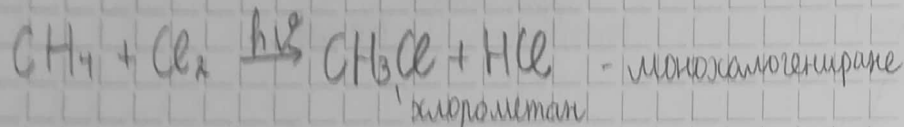 CH₄ + Cl₂ hν→ CH₃Cl + HCl - монохалогениране
хлорометан